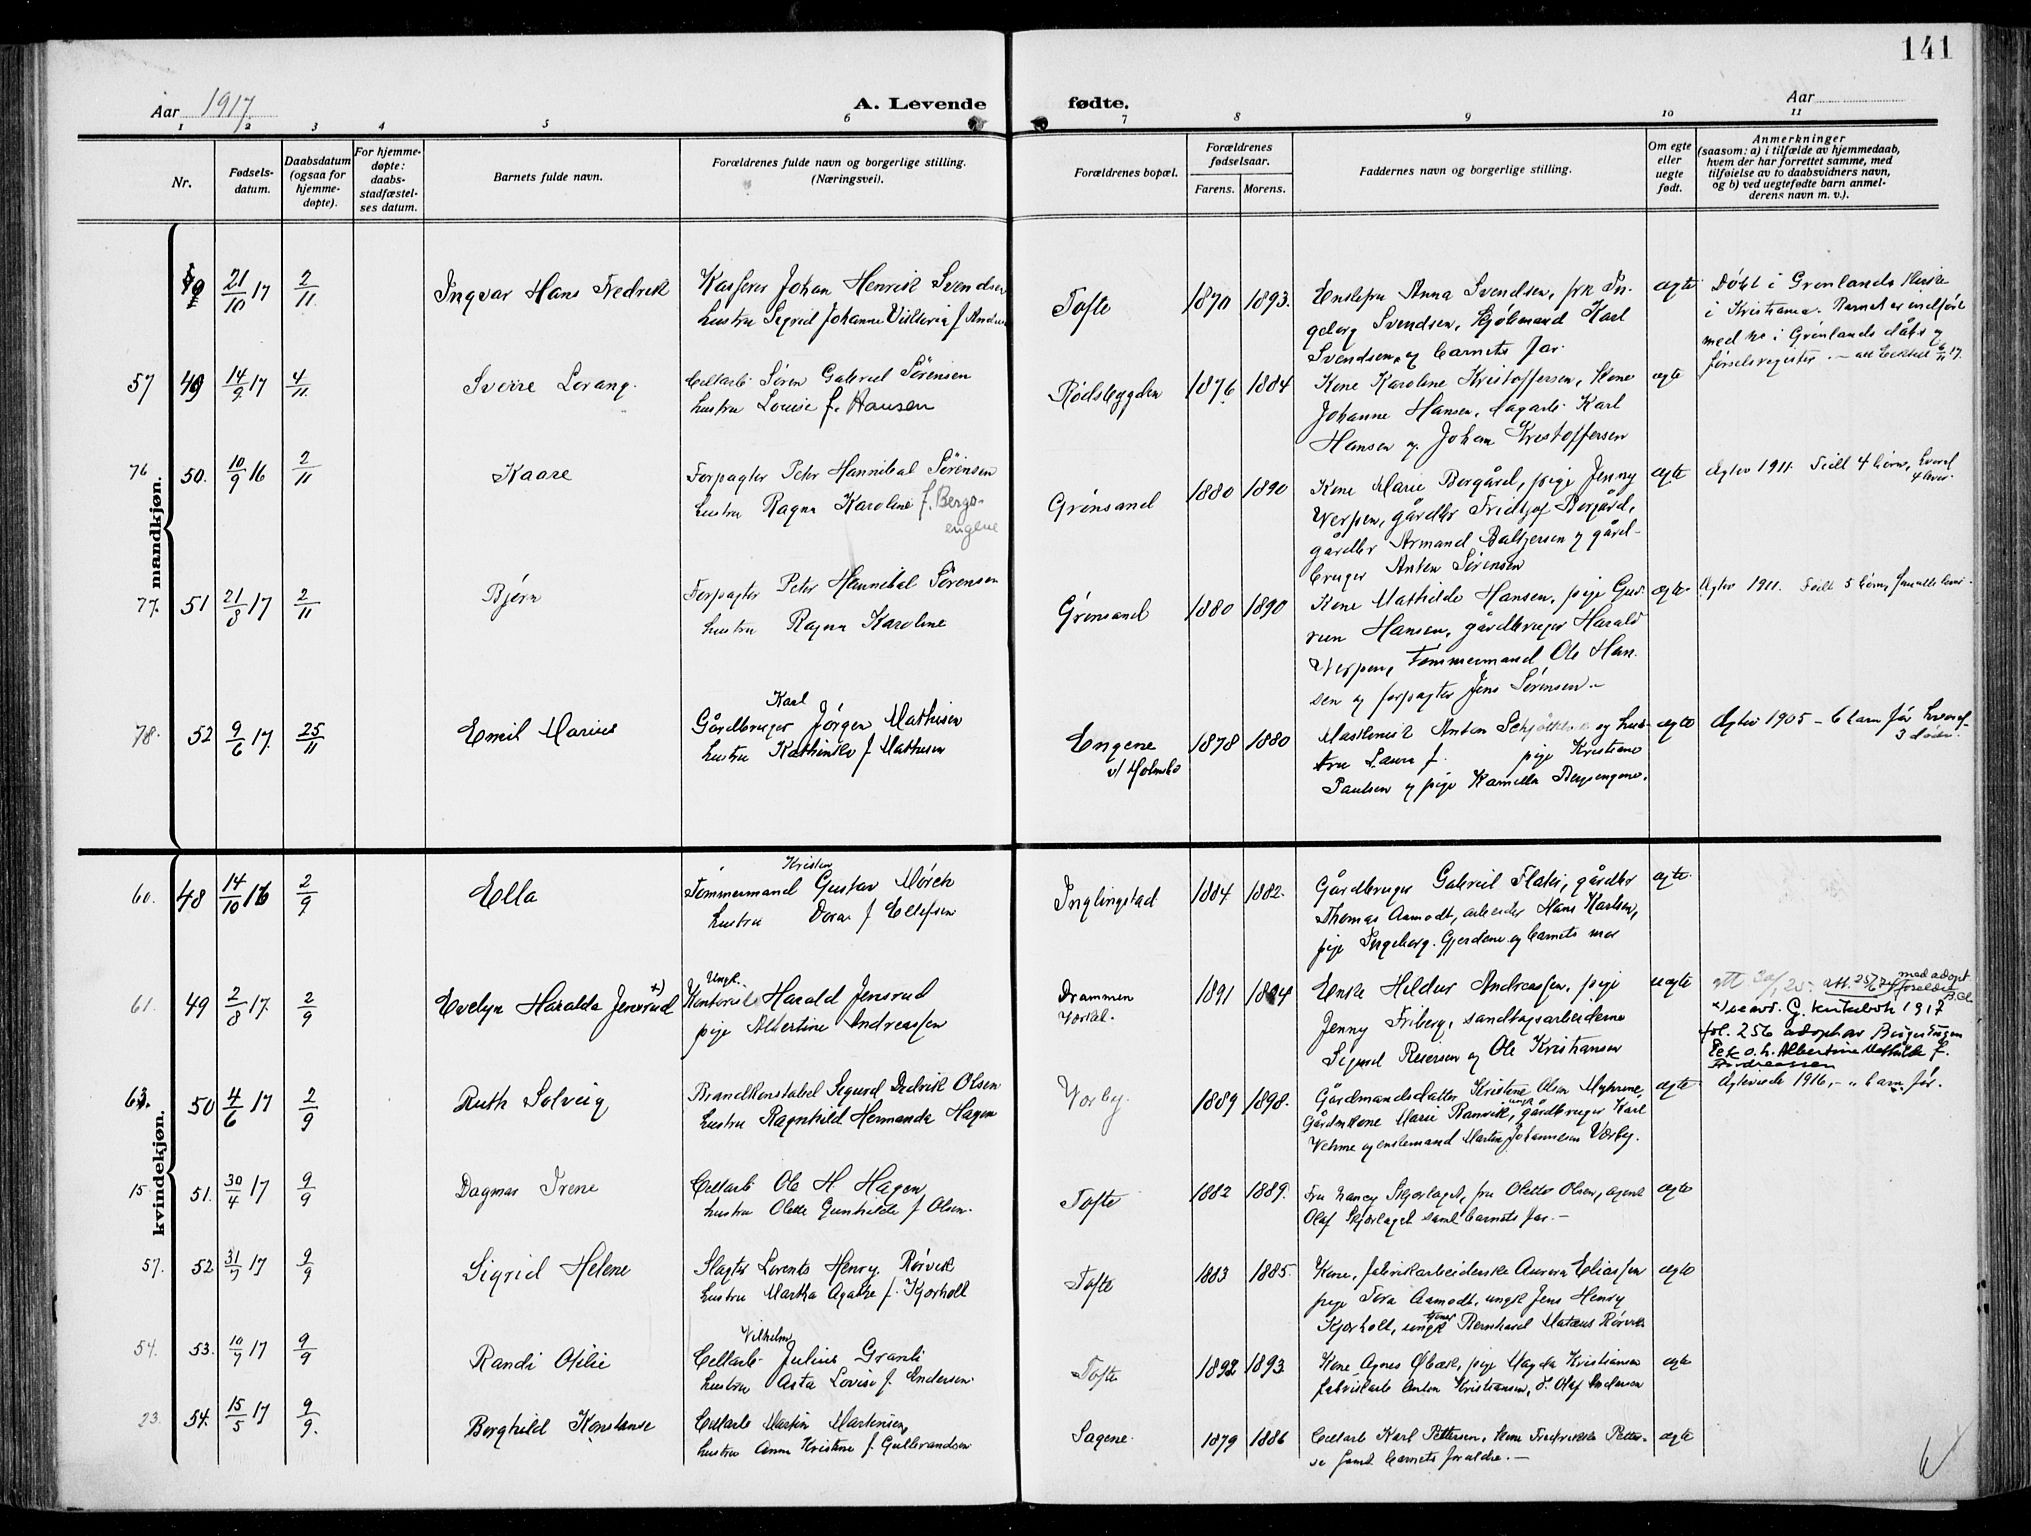 141
Aar 1917.
A. Levende fødte.
Aar
1 2 3 4 5 6 7 8 9 10 11
Nr.
Fødsels-
datum.
Daabsdatum
(ogsaa for
hjemme-
døpte).
For hjemme-
døpte:
daabs-
stadfæstel-
ses datum.
Barnets fulde navn.
Forældrenes fulde navn og borgerlige stilling.
(Næringsvei).
Forældrenes bopæl.
Forældrenes
fødselsaar.
Farens. Morens.
Faddernes navn og borgerlige stilling.
Om egte
eller
uegte
født.
Anmerkninger
(saasom: a) i tilfælde av hjemmedaab,
hvem der har forrettet samme, med
tilføielse av to daabsvidners navn,
og b) ved uegtefødte barn anmel-
derens navn m. v.).
mandkjøn.
21/10 17 2/11 Ingvar Hans Fredrik
Kasserer Johan Henrik Svendsen
hustru Sigrid Johanne Viktoria f.
Tofte 1870 1893.
Enkefru Anna Svendsen, frk In-
geborg Svendsen, Karl
Svendsen og barnets far.
egte
Døbt i Grønlands kirke
i Kristiania. Barnet er indført
med no i Grønlands dåbs og
fødselsregister.
57 49 14/9 17 4/11 Sverre Lorang.
Cellarb. Søren Gabriel Sørensen
hustru Louise f. Hansen
Rødsbygden 1876 1884
Kone Karoline Kristoffersen, Kone
Johanne Hansen, dagarb. Karl
Hansen og Johan Kristoffersen
egte
76 50. 10/9 16 2/11 Kaare
Forpagter Peter Hannibal Sørensen
hustru Ragna Karoline f. Bergs-
engene
Grønsand 1880 1890
Kone Marie Borgård, pige Jenny
Verpen, gårdbr Fridtjof Borgård,
gårdbr Armand Baltzersen og gård-
bruger Anton Sørensen
egte
Egtev 1911. Født 4 børn, hvoraf
4 lever.
77. 51 21/8 17 2/11 Bjørn
Forpagter Peter Hannibal Sørensen
hustru Ragna Karoline
Grønsand 1880 1890
Kone Mathilde Hansen, pige Gud-
run Hansen, gårdbruger Harald
Verpen, Tømmermand Ole Han-
sen og forpagter Jens Sørensen.-
egte
Egtev 1911. Født 5 børn,
78. 52 9/6 17. 25/11 Emil Marius
Karl
Gårdbruger Jørgen Mathisen
hustru Kathinka f Mathisen
Engene
v/ Holmsbo
1878 1880
Maskinist Anton og hus-
tru Laura f. pige Kristiane
Paulsen og pige Kamilla Bergsengene.
egte
Egtev 1905 - 6 barn før hvoraf
3 døde.
kvindekjøn.
60. 48 14/10 16 2/9 Ella
Kristen
Tømmermand Gustav Mørch
hustru Dora f Ellefsen
Inglingstad 1884 1882.
Gårdbruger Gabriel Flater, gårdbr
Thomas Aamodt, arbeider Hans Karlsen,
pige Ingeborg Gjerdene og barnets mor
egte.
61. 49 2/8 17. 2/9 Evelyn Haralda Jensrud x)
Ungk.
Kontorist Harald Jensrud
pige Albertine Andreassen
Drammen
1891 1894
Enke Hildur Andreassen, pige
Jenny Friberg, sandtagsarbeiderne
Sigurd Reiersen og Ole Kristiansen
uegte
med adopt
foreldre
G. kirkebok 1917
fol. 256 adopt av Birger
Eek o. h. Albertine Mathilde f.
Andreassen
63. 50 4/6 17 2/9 Ruth Solveig
Brandkonstabel Sigurd Didrik Olsen
hustru Ragnhild Hermanda Hagen
Verby. 1889 1898.
Gårdmandsdatter Kristine Olsen Myhrene,
Gårdmkone Marie Ramvik, ungk gårdbruger Karl
Vehme og enkemand Martin Johannesen Verby.
egte
Egteviede 1916, - barn før.
15 51. 30/4 17 9/9 Dagmar Irene
Cellarb Ole H. Hagen
hustru Olette Gunhilde f Olsen.
Tofte 1882 1889.
Fru Nancy Skjørlaget, fru Olette Olsen, agent
Olaf Skjørlaget samt barnets far.-
egte
57. 52 31/7 17 9/9 Sigrid Helene
Slagter Lorents Henry Rørvik
hustru Martha Agathe f. Kjorholt
Tofte 1883 1885.
Kone, fabrikarbeiderske Aurora Eliassen
pige Tora Aamodt, ungk Jens Henry
Kjorholt, ungk Bernhard Mateus Rørvik
egte
54. 53. 10/7 17 9/9 Randi Otilie
Vilhelm
Cellarb. Julius Granli
hustru Asta Lovise f. Andersen.
Tofte 1892 1893
Kone Agnes Øbæk, pige Magda Kristiansen
fabrikarb Anton Kristiansen, d. Olaf Andersen
egte
23. 54. 15/5 17 9/9. Borghild Konstanse
Cellarb Martin Martinsen
hustru Anna Kristine f. Gulbrandsen
Sagene. 1879 1886
Cellarb Karl Pettersen, kone Fredrikke Petter-
se samt barnets forældre.-
egte